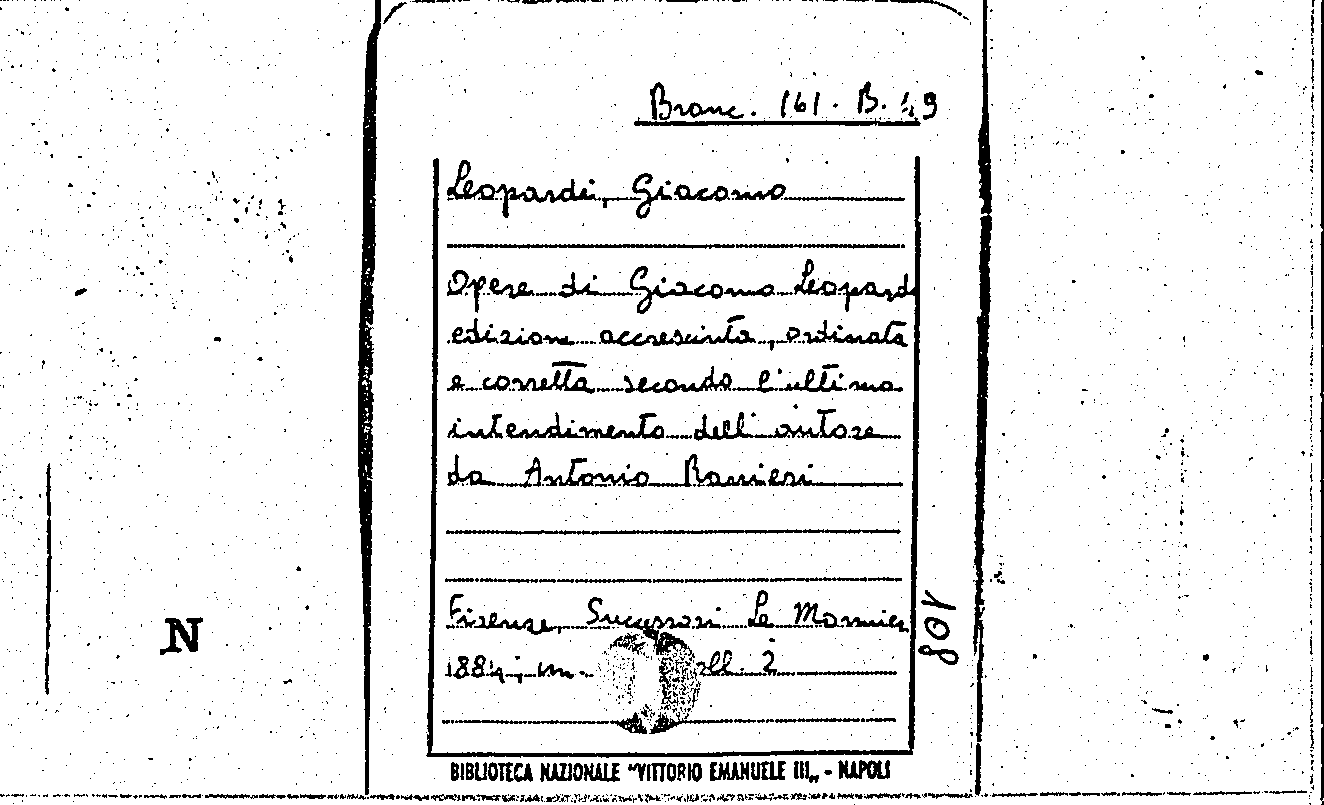 Branc. 161. B. 49
Leopardi, Giacomo
Opere di Giacomo Leopardi
edizione accresciuta, ordinata
e corretta secondo l'ultimo
intendimento dell'autore
da Antonio Ranieri
Firenze, Successori Le Monnier
108
N
1884, in voll. 2
BIBLIOTECA NAZIONALE "VITTORIO EMANUELE III„ - NAPOLI